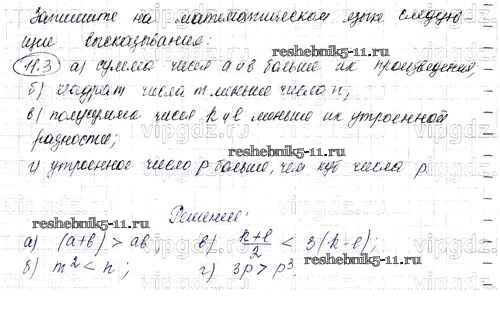 Запишите на математическом языке следую
щие высказывания:
reshebnik5-11.ru
11.3 а) сумма чисел a и b больше их произведения;
б) квадрат числа m меньше числа n;
в) полусумма чисел k и l меньше их утроенной
разности;
reshebnik5-11.ru
г) утроенное число p больше, чем куб числа p.
reshebnik5-11.ru
Решение:
а) (a+b) > ab; в) k+l/2 < 3(k-l);
б) m² < n; г) 3p > p³.
reshebnik5-11.ru
vipgdz.ru